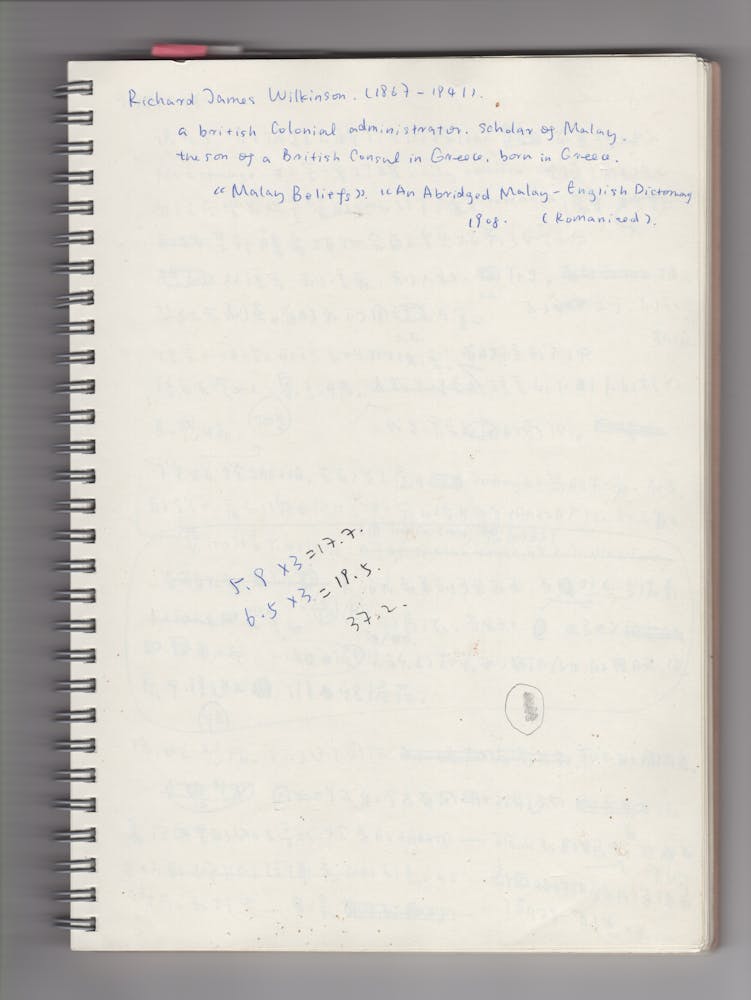 Richard James Wilkinson. (1867 - 1941).
a british Colonial administrator. scholar of Malay.
the son of a British Consul in Greece, born in Greece.
《Malay Beliefs》, 《An Abridged Malay - English Dictonay
1908. (Romanized).
5.8 x3 = 17.7.
6.5 x3 = 19.5.
37.2.